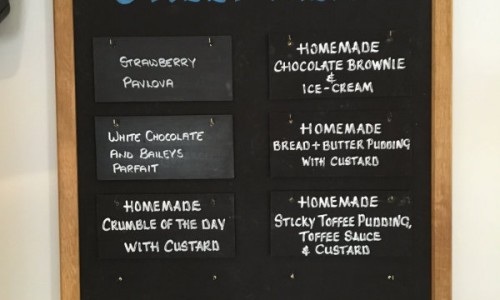 STRAWBERRY
PAVLOVA
WHITE CHOCOLATE
AND BAILEYS
PARFAIT
HOMEMADE
CRUMBLE OF THE DAY
WITH CUSTARD
HOMEMADE
CHOCOLATE BROWNIE
&
ICE-CREAM
HOMEMADE
BREAD + BUTTER PUDDING
WITH CUSTARD
HOMEMADE
STICKY TOFFEE PUDDING,
TOFFEE SAUCE
& CUSTARD